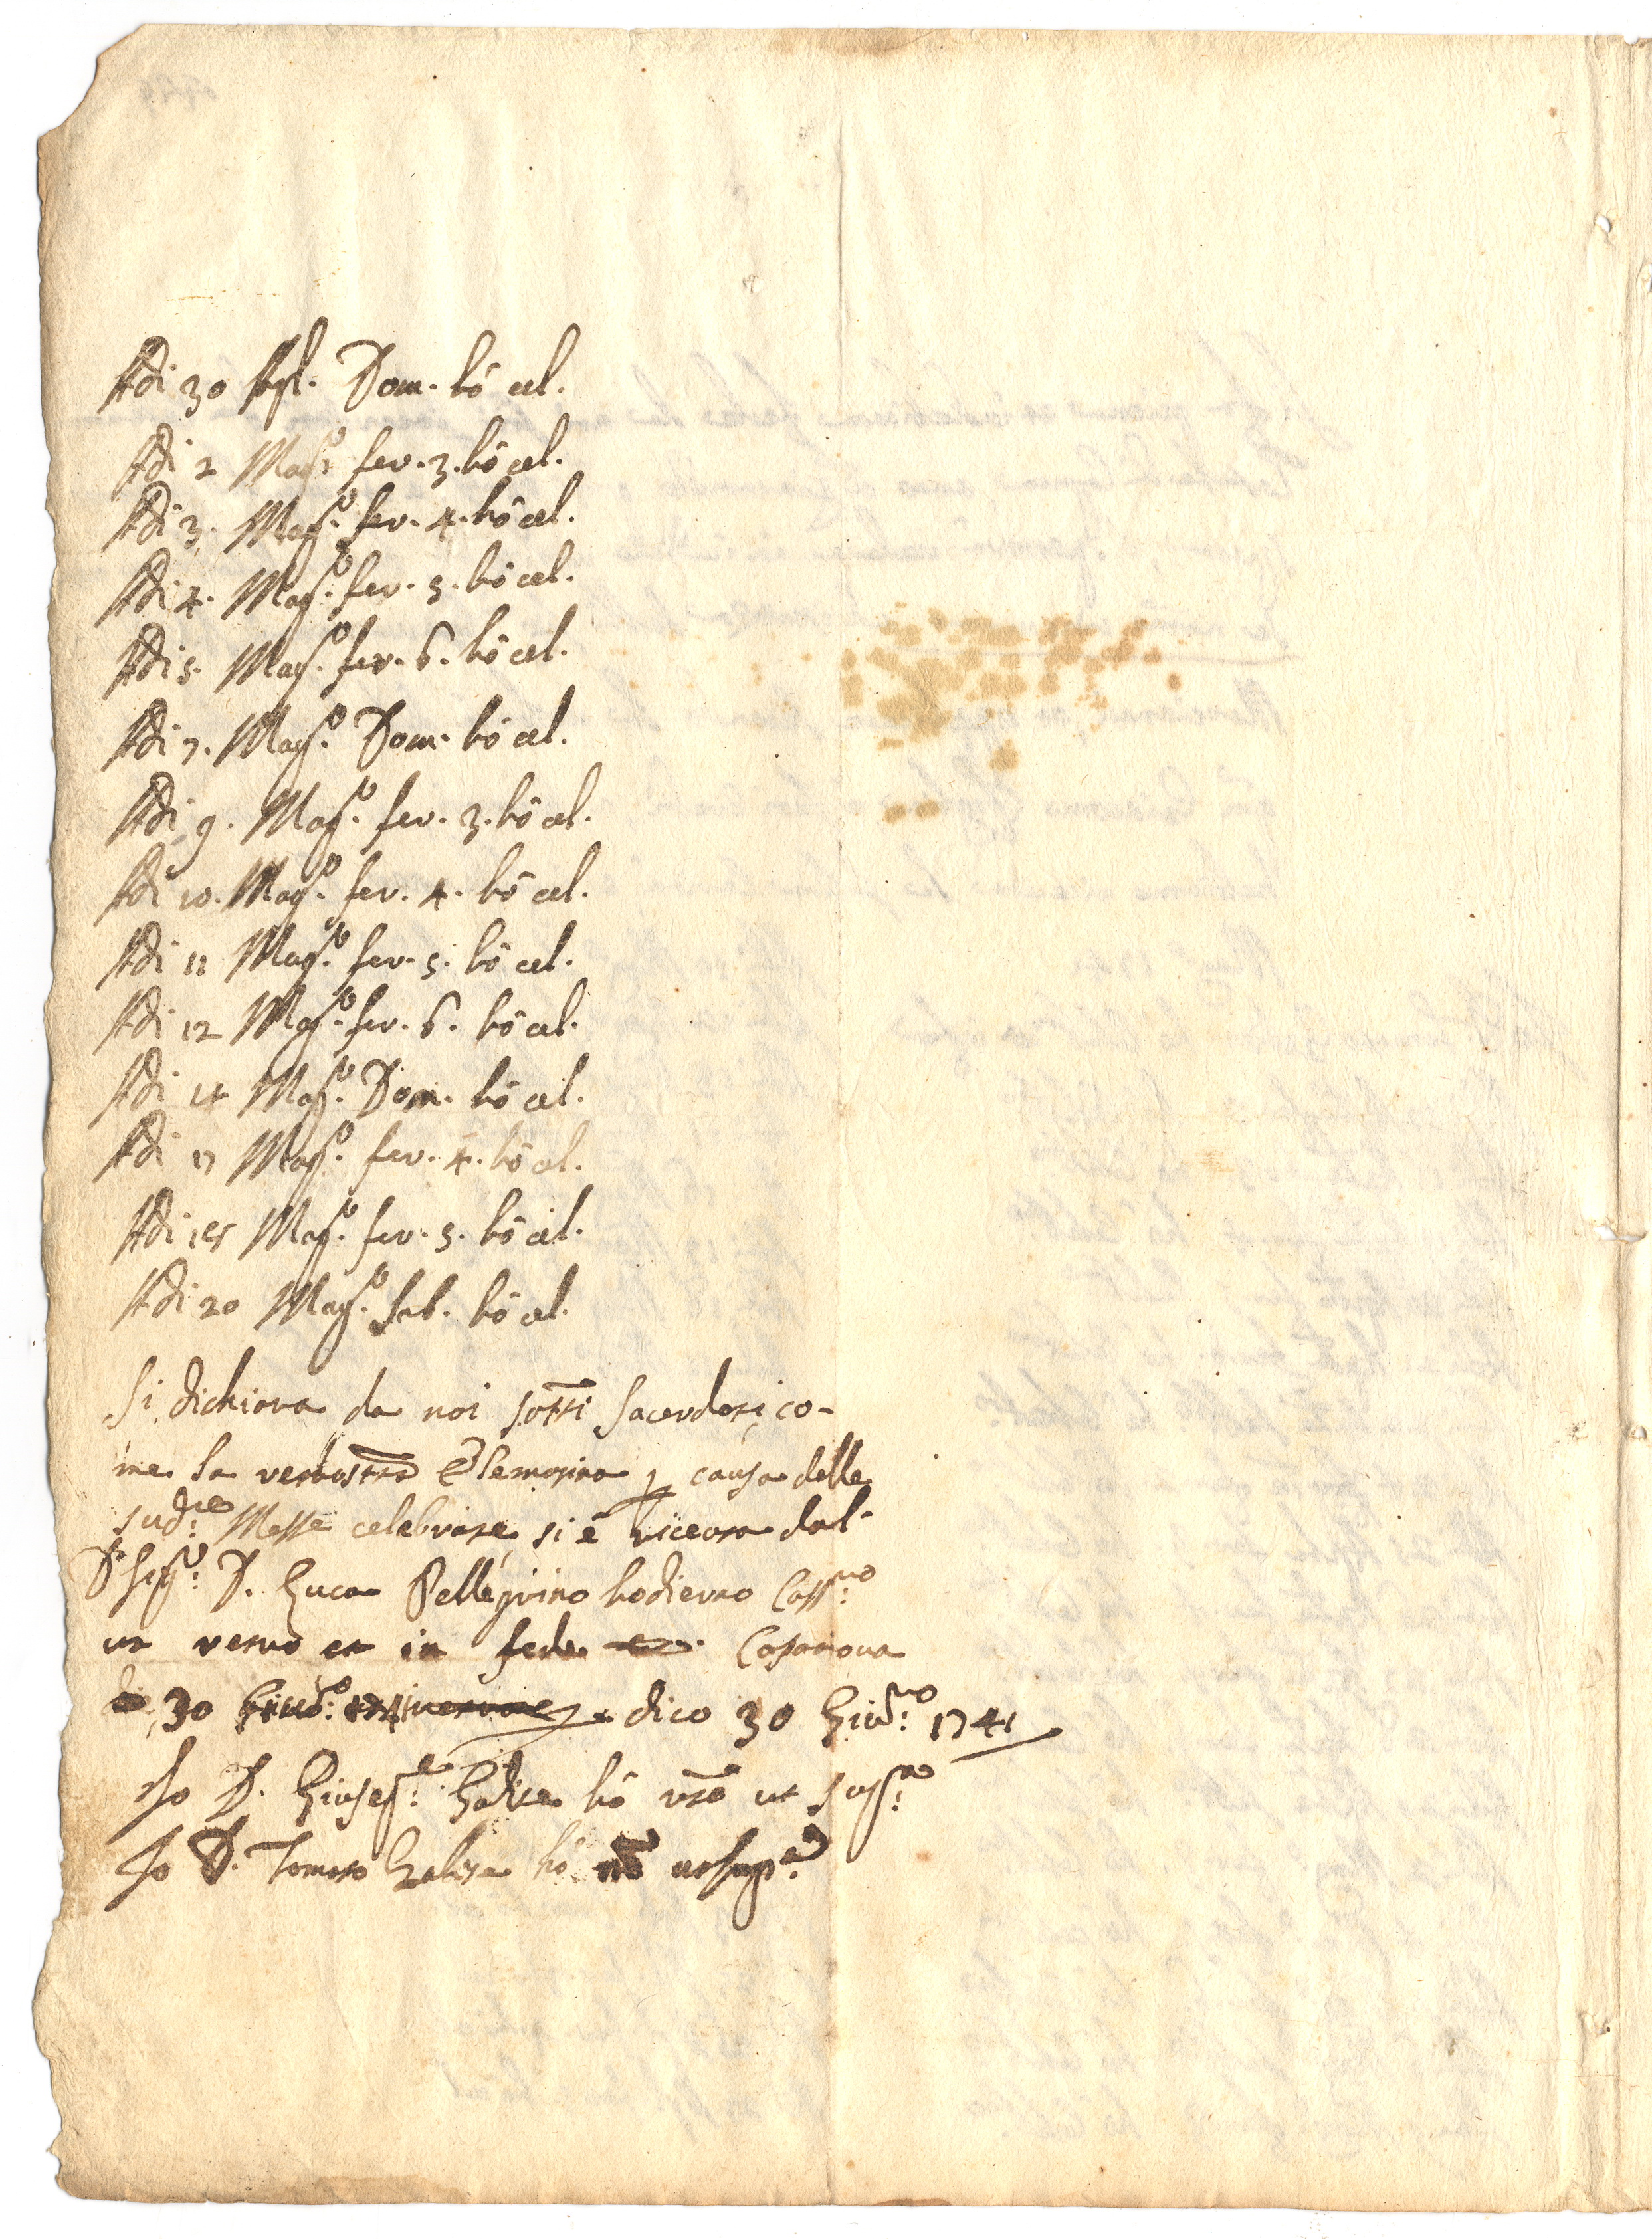 Adi 30 Apl. Dom. hò cel.
Adi 2 Magº: fer. 3. hò cel.
Adi 3. Magº: fer. 4. hò cel.
Adi 4. Magº: fer. 5. hò cel.
Adi 5. Magº: fer. 6. hò cel.
Adi 7. Magº: Dom. hò cel.
Adi 9. Magº: fer. 3. hò cel.
Adi 10. Magº: fer. 4. hò cel.
Adi 11 Magº: fer. 5. hò cel.
Adi 12 Magº: fer. 6. hò cel.
Adi 14 Magº: Dom. hò cel.
Adi 17 Magº: fer. 4. hò cel.
Adi 18 Magº: fer. 5. hò cel.
Adi 20 Magº: Sab. hò cel.
Si dichiara da noi sotti Sacerdoti co-
me la Elemosina p causa delle
sudte: Messe celebrate si è riceuta dal
D. Luca Pellegrino hodierno Cassno:
ut retro et in fede Casanova
30 dico 30 Giuno: 1741
Io D. Giusepe: hò rto ut supra:
Io D. Tomaso hò rto ut supa: